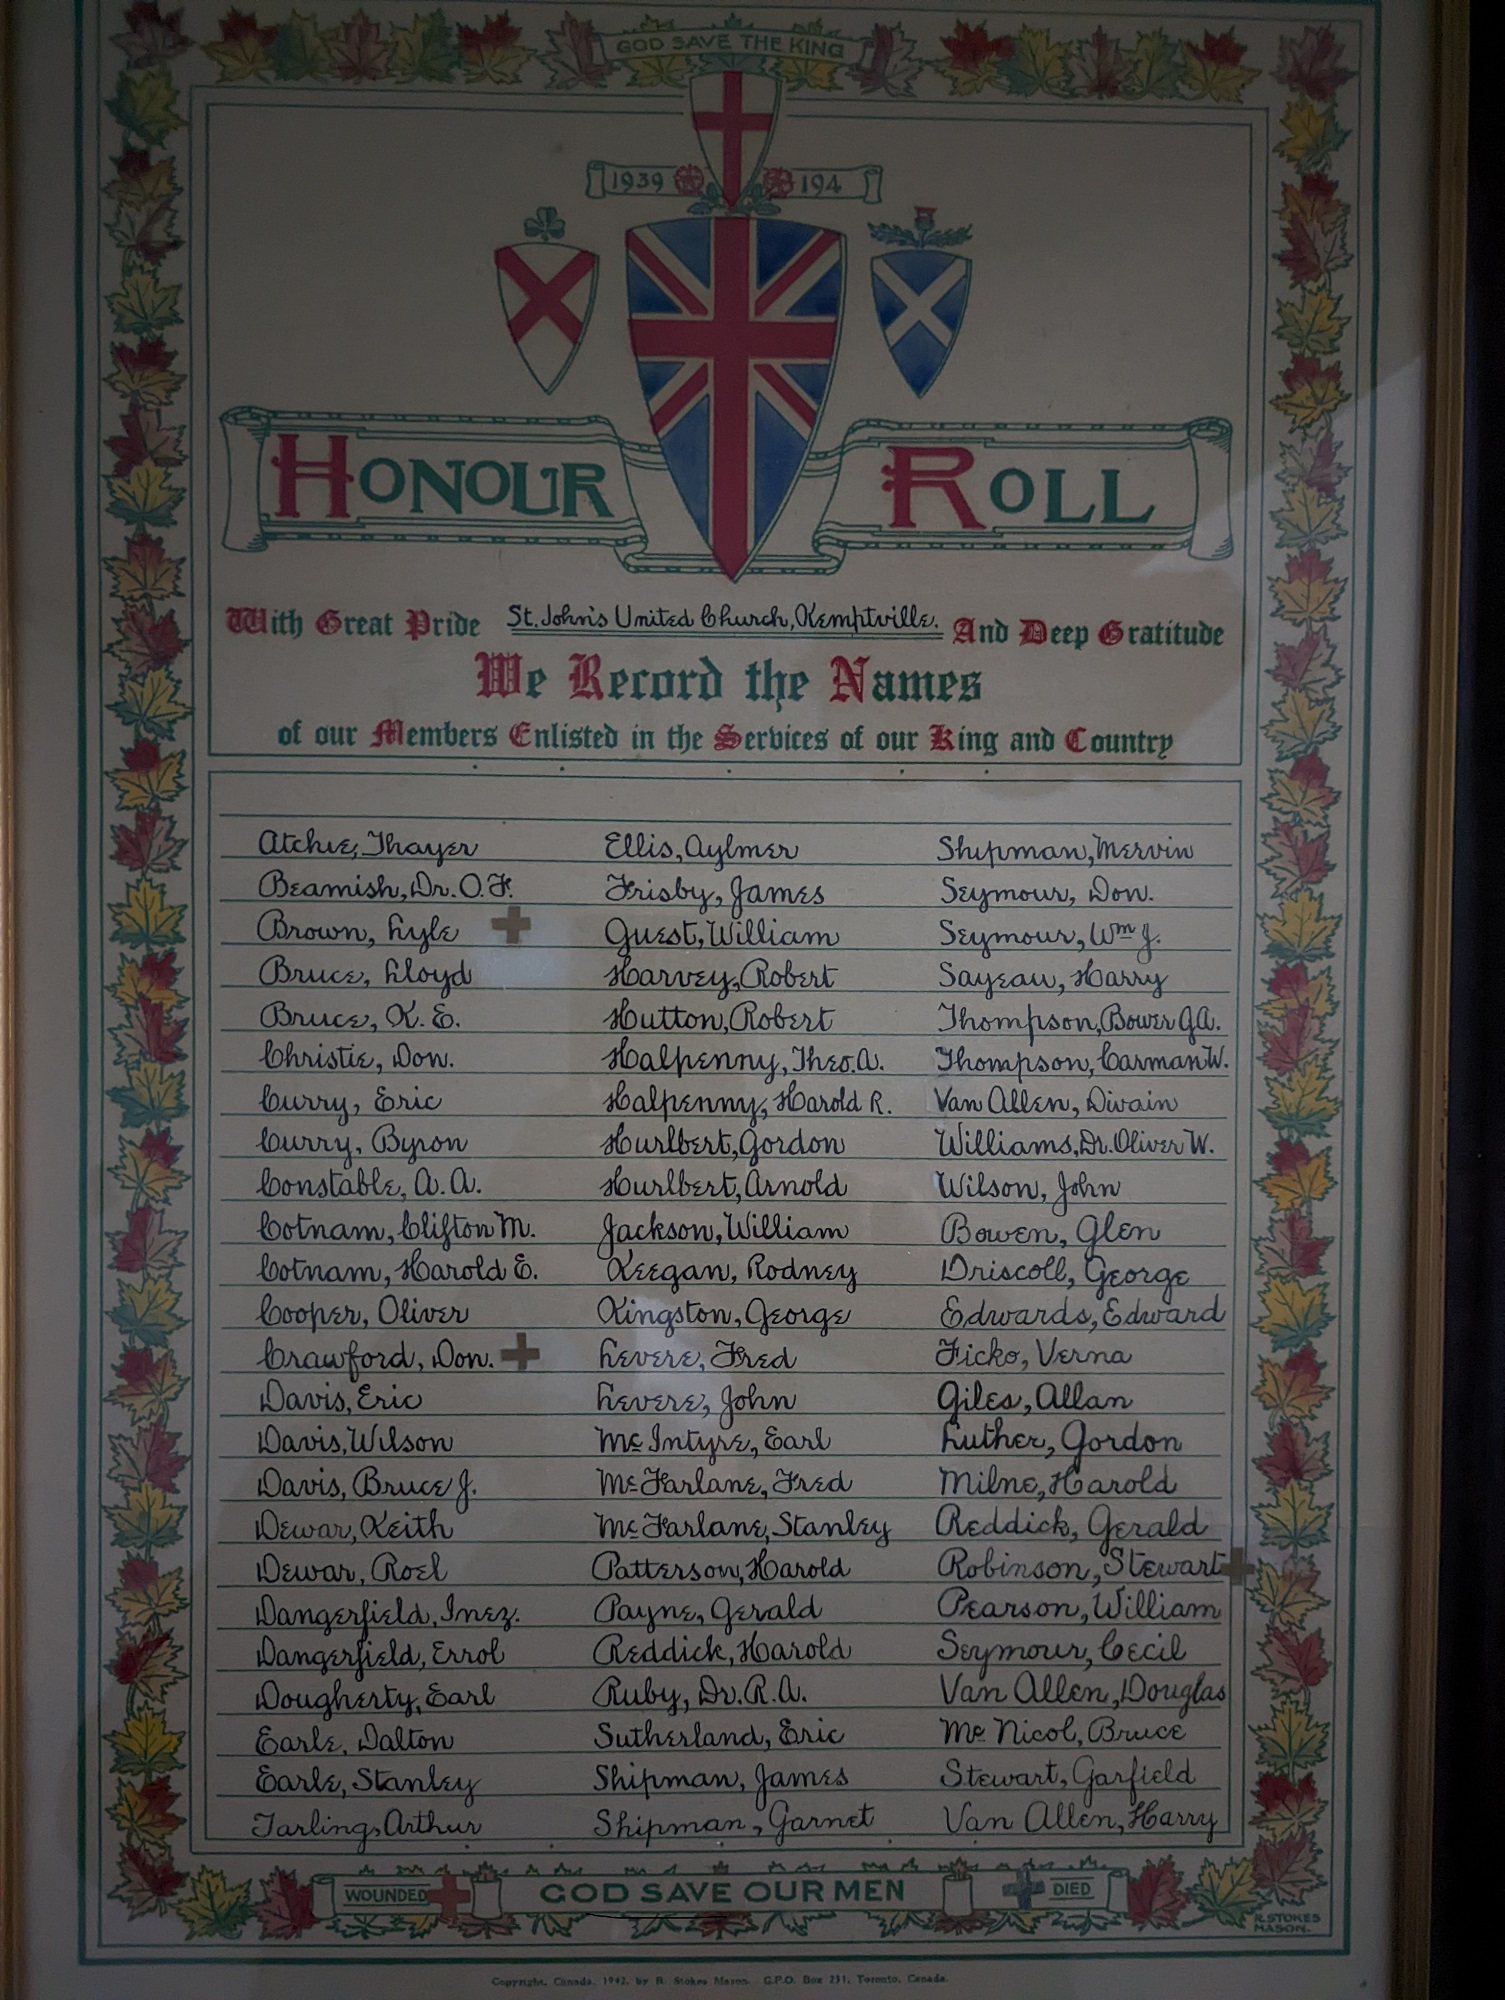 GOD SAVE THE KING
1939 194
HONOUR ROLL
With Great Pride St. John's United Church, Kemptville. And Deep Gratitude
We Record the Names
of our Members Enlisted in the Services of our King and Country
Atchie, Thayer
Beamish, Dr. O. F.
Brown, Lyle
Bruce, Lloyd
Bruce, K. E.
Christie, Don.
Curry, Eric
Curry, Byron
Constable, A. A.
Cotnam, Clifton M.
Cotnam, Harold E.
Cooper, Oliver
Crawford, Don.
Davis, Eric
Davis, Wilson
Davis, Bruce J.
Dewar, Keith
Dewar, Roel
Dangerfield, Inez.
Dangerfield, Errol
Dougherty, Earl
Earle, Dalton
Earle, Stanley
Tarling, Arthur
Ellis, Aylmer
Frisby, James
Guest, William
Harvey, Robert
Hutton, Robert
Halpenny, Theo. A.
Halpenny, Harold R.
Hurlbert, Gordon
Hurlbert, Arnold
Jackson, William
Keegan, Rodney
Kingston, George
Levere, Fred
Levere, John
McIntyre, Earl
McFarlane, Fred
McFarlane, Stanley
Patterson, Harold
Payne, Gerald
Reddick, Harold
Ruby, Dr. R. A.
Sutherland, Eric
Shipman, James
Shipman, Garnet
Shipman, Mervin
Seymour, Don.
Seymour, Wm J.
Sayeau, Harry
Thompson, Bower G. A.
Thompson, Carman W.
Van Allen, Divain
Williams, Dr. Oliver W.
Wilson, John
Bowen, Glen
Driscoll, George
Edwards, Edward
Ficko, Verna
Giles, Allan
Luther, Gordon
Milne, Harold
Reddick, Gerald
Robinson, Stewart
Pearson, William
Seymour, Cecil
Van Allen, Douglas
Mc Nicol, Bruce
Stewart, Garfield
Van Allen, Harry
WOUNDED GOD SAVE OUR MEN DIED
R. STOKES
MASON.
Copyright, Canada, 1942, by R. Stokes Mason. G.P.O. Box 231, Toronto, Canada.